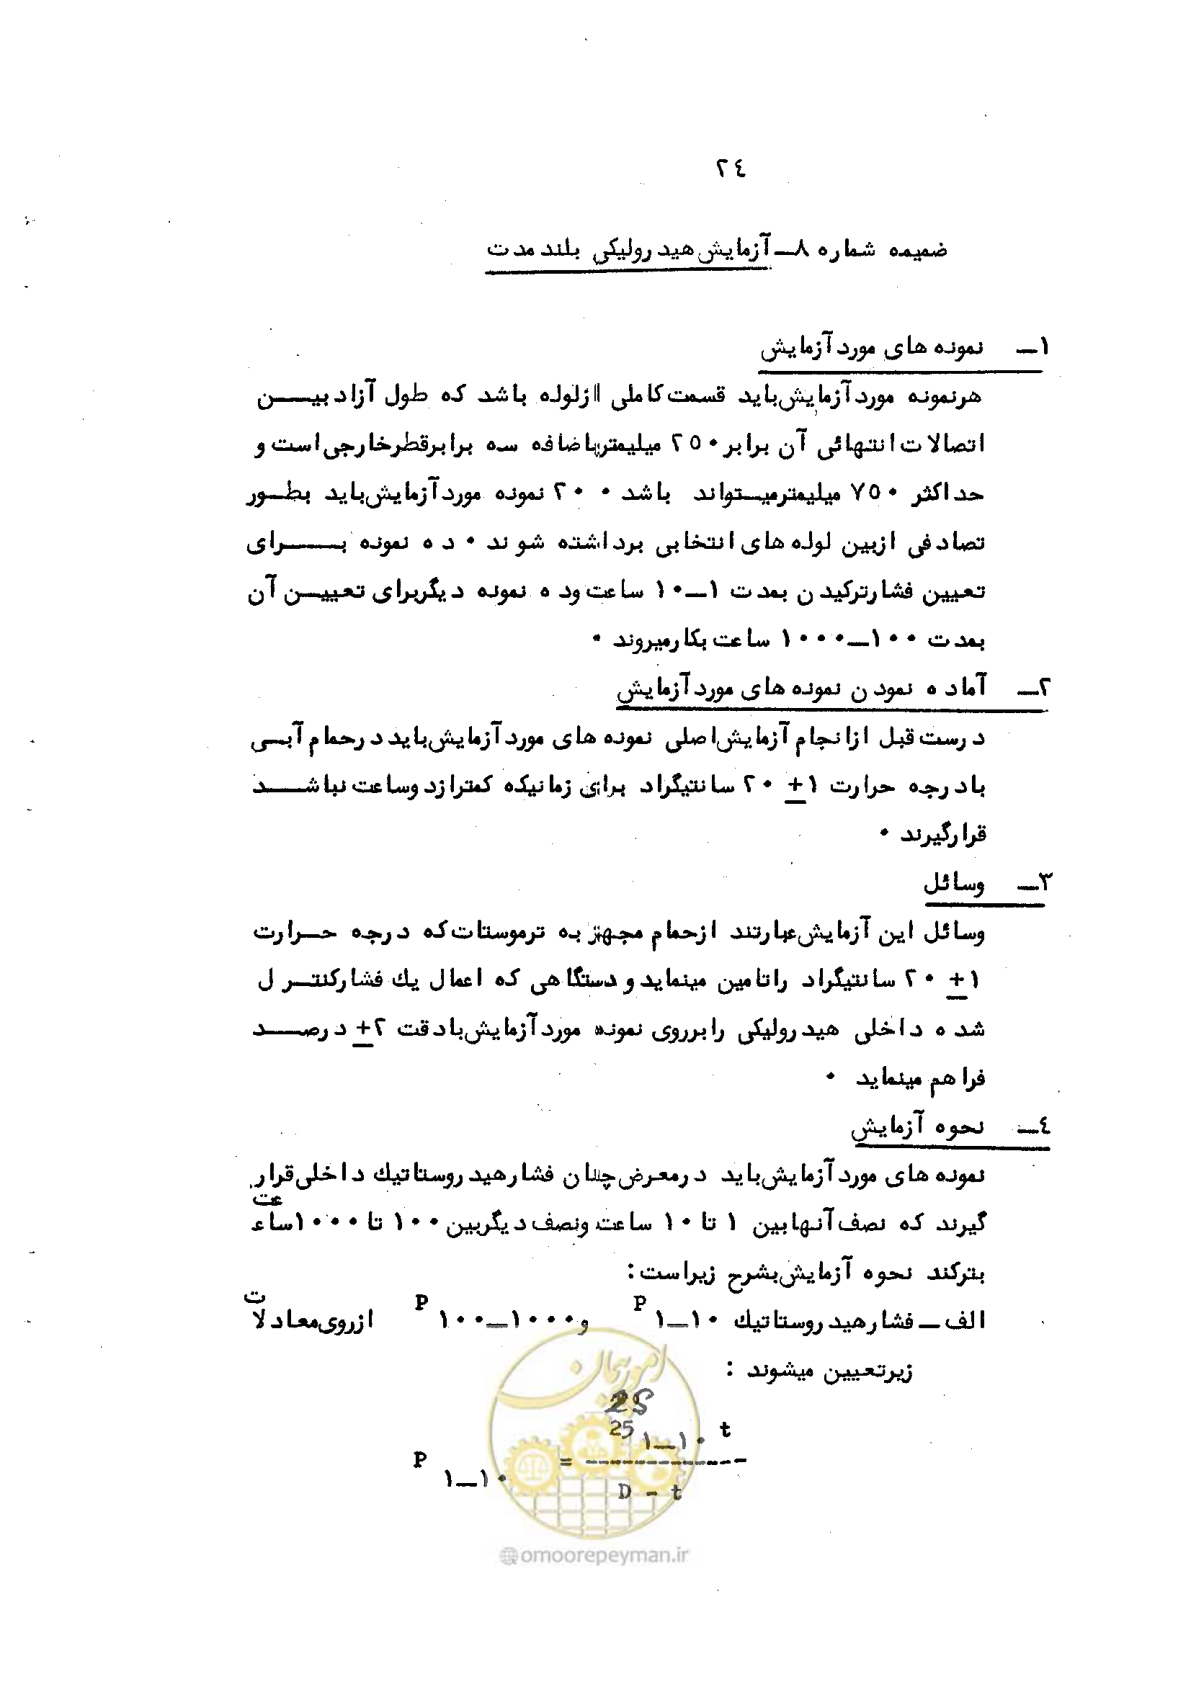 ٢٤
ضمیمه شماره ٨ــ آزمایش هیدرولیکی بلند مدت
١ــ نمونه های مورد آزمایش
هرنمونه مورد آزمایش باید قسمت کاملی ازلوله باشد که طول آزاد بیـــن
اتصالات انتهائی آن برابر ٢٥٠ میلیمتر باضافه سه برابر قطرخارجی است و
حداکثر ٧٥٠ میلیمتر میــتواند باشد ٠ ٢٠ نمونه مورد آزمایش باید بطــور
تصادفی ازبین لوله های انتخابی برداشته شوند ٠ ده نمونه بـــرای
تعیین فشارترکیدن بمدت ١ــ١٠ ساعت وده نمونه دیگربرای تعییــن آن
بمدت ١٠٠ــ١٠٠٠ ساعت بکارمیروند ٠
٢ــ آماده نمودن نمونه های مورد آزمایش
درست قبل ازانجام آزمایش اصلی نمونه های مورد آزمایش باید درحمام آبــی
بادرجه حرارت ١ ± ٢٠ سانتیگراد برای زمانیکه کمترازدوساعت نباشـــد
قرارگیرند ٠
٣ــ وسائل
وسائل این آزمایش عبارتند ازحمام مجهز به ترموستات که درجه حــرارت
١ ± ٢٠ سانتیگراد راتامین مینماید و دستگاهی که اعمال یك فشارکنتــرل
شده داخلی هیدرولیکی را برروی نمونه مورد آزمایش بادقت ٢± درصـــد
فراهم مینماید ٠
٤ــ نحوه آزمایش
نمونه های مورد آزمایش باید درمعرض چنان فشارهیدروستاتیك داخلی قرار
گیرند که نصف آنها بین ١ تا ١٠ ساعت ونصف دیگربین ١٠٠ تا ١٠٠٠ ساعت
بترکند نحوه آزمایش بشرح زیراست :
الف ــ فشارهیدروستاتیك P ١ــ١٠ و P ١٠٠ــ١٠٠٠ ازروی معادلات
زیرتعیین میشوند :
2S
25 ١ــ١٠ t
P ١ــ١٠ = ----------------
D - t
امور پیمان
@omoorepeyman.ir